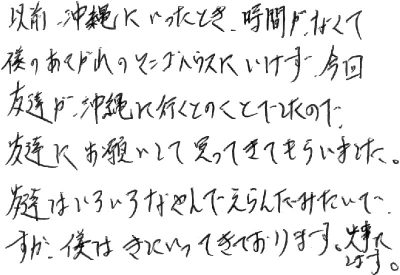 以前、沖縄にいったとき、時間が、なくて
僕のあこがれのそこがハウスにいけず、今回
友達が、沖縄に行くとのことでしたので、
友達にお願いして買ってきてもらいました。
友達はいろいろなやんでえらんだみたいで、
すが、僕はきにいってきております。
です。